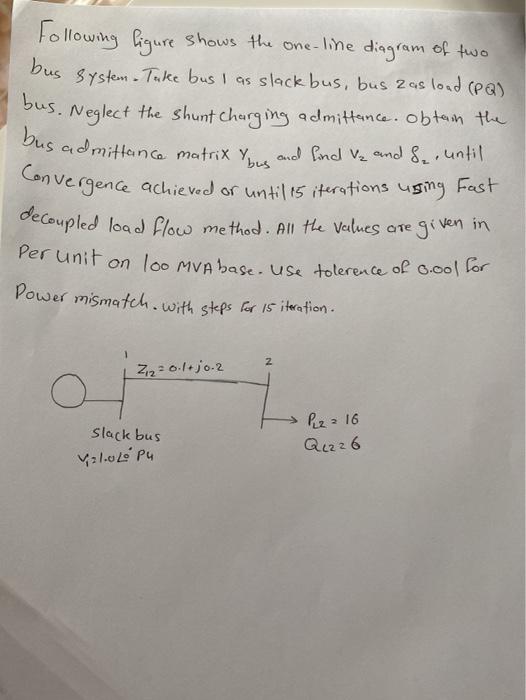 Following figure shows the one-line diagram of two
bus system. Take bus 1 as slack bus, bus 2 as load (PQ)
bus. Neglect the shunt charging admittance. obtain the
bus admittance matrix Ybus and find V2 and δ2, until
Convergence achieved or until 15 iterations using Fast
decoupled load flow method. All the values are given in
Per unit on 100 MVA base. Use tolerence of 0.001 for
Power mismatch. with steps for 15 iteration.
1
Z12 = 0.1+j0.2
2
PL2 = 16
QL2 = 6
Slack bus
V1=1.0∠0° PU